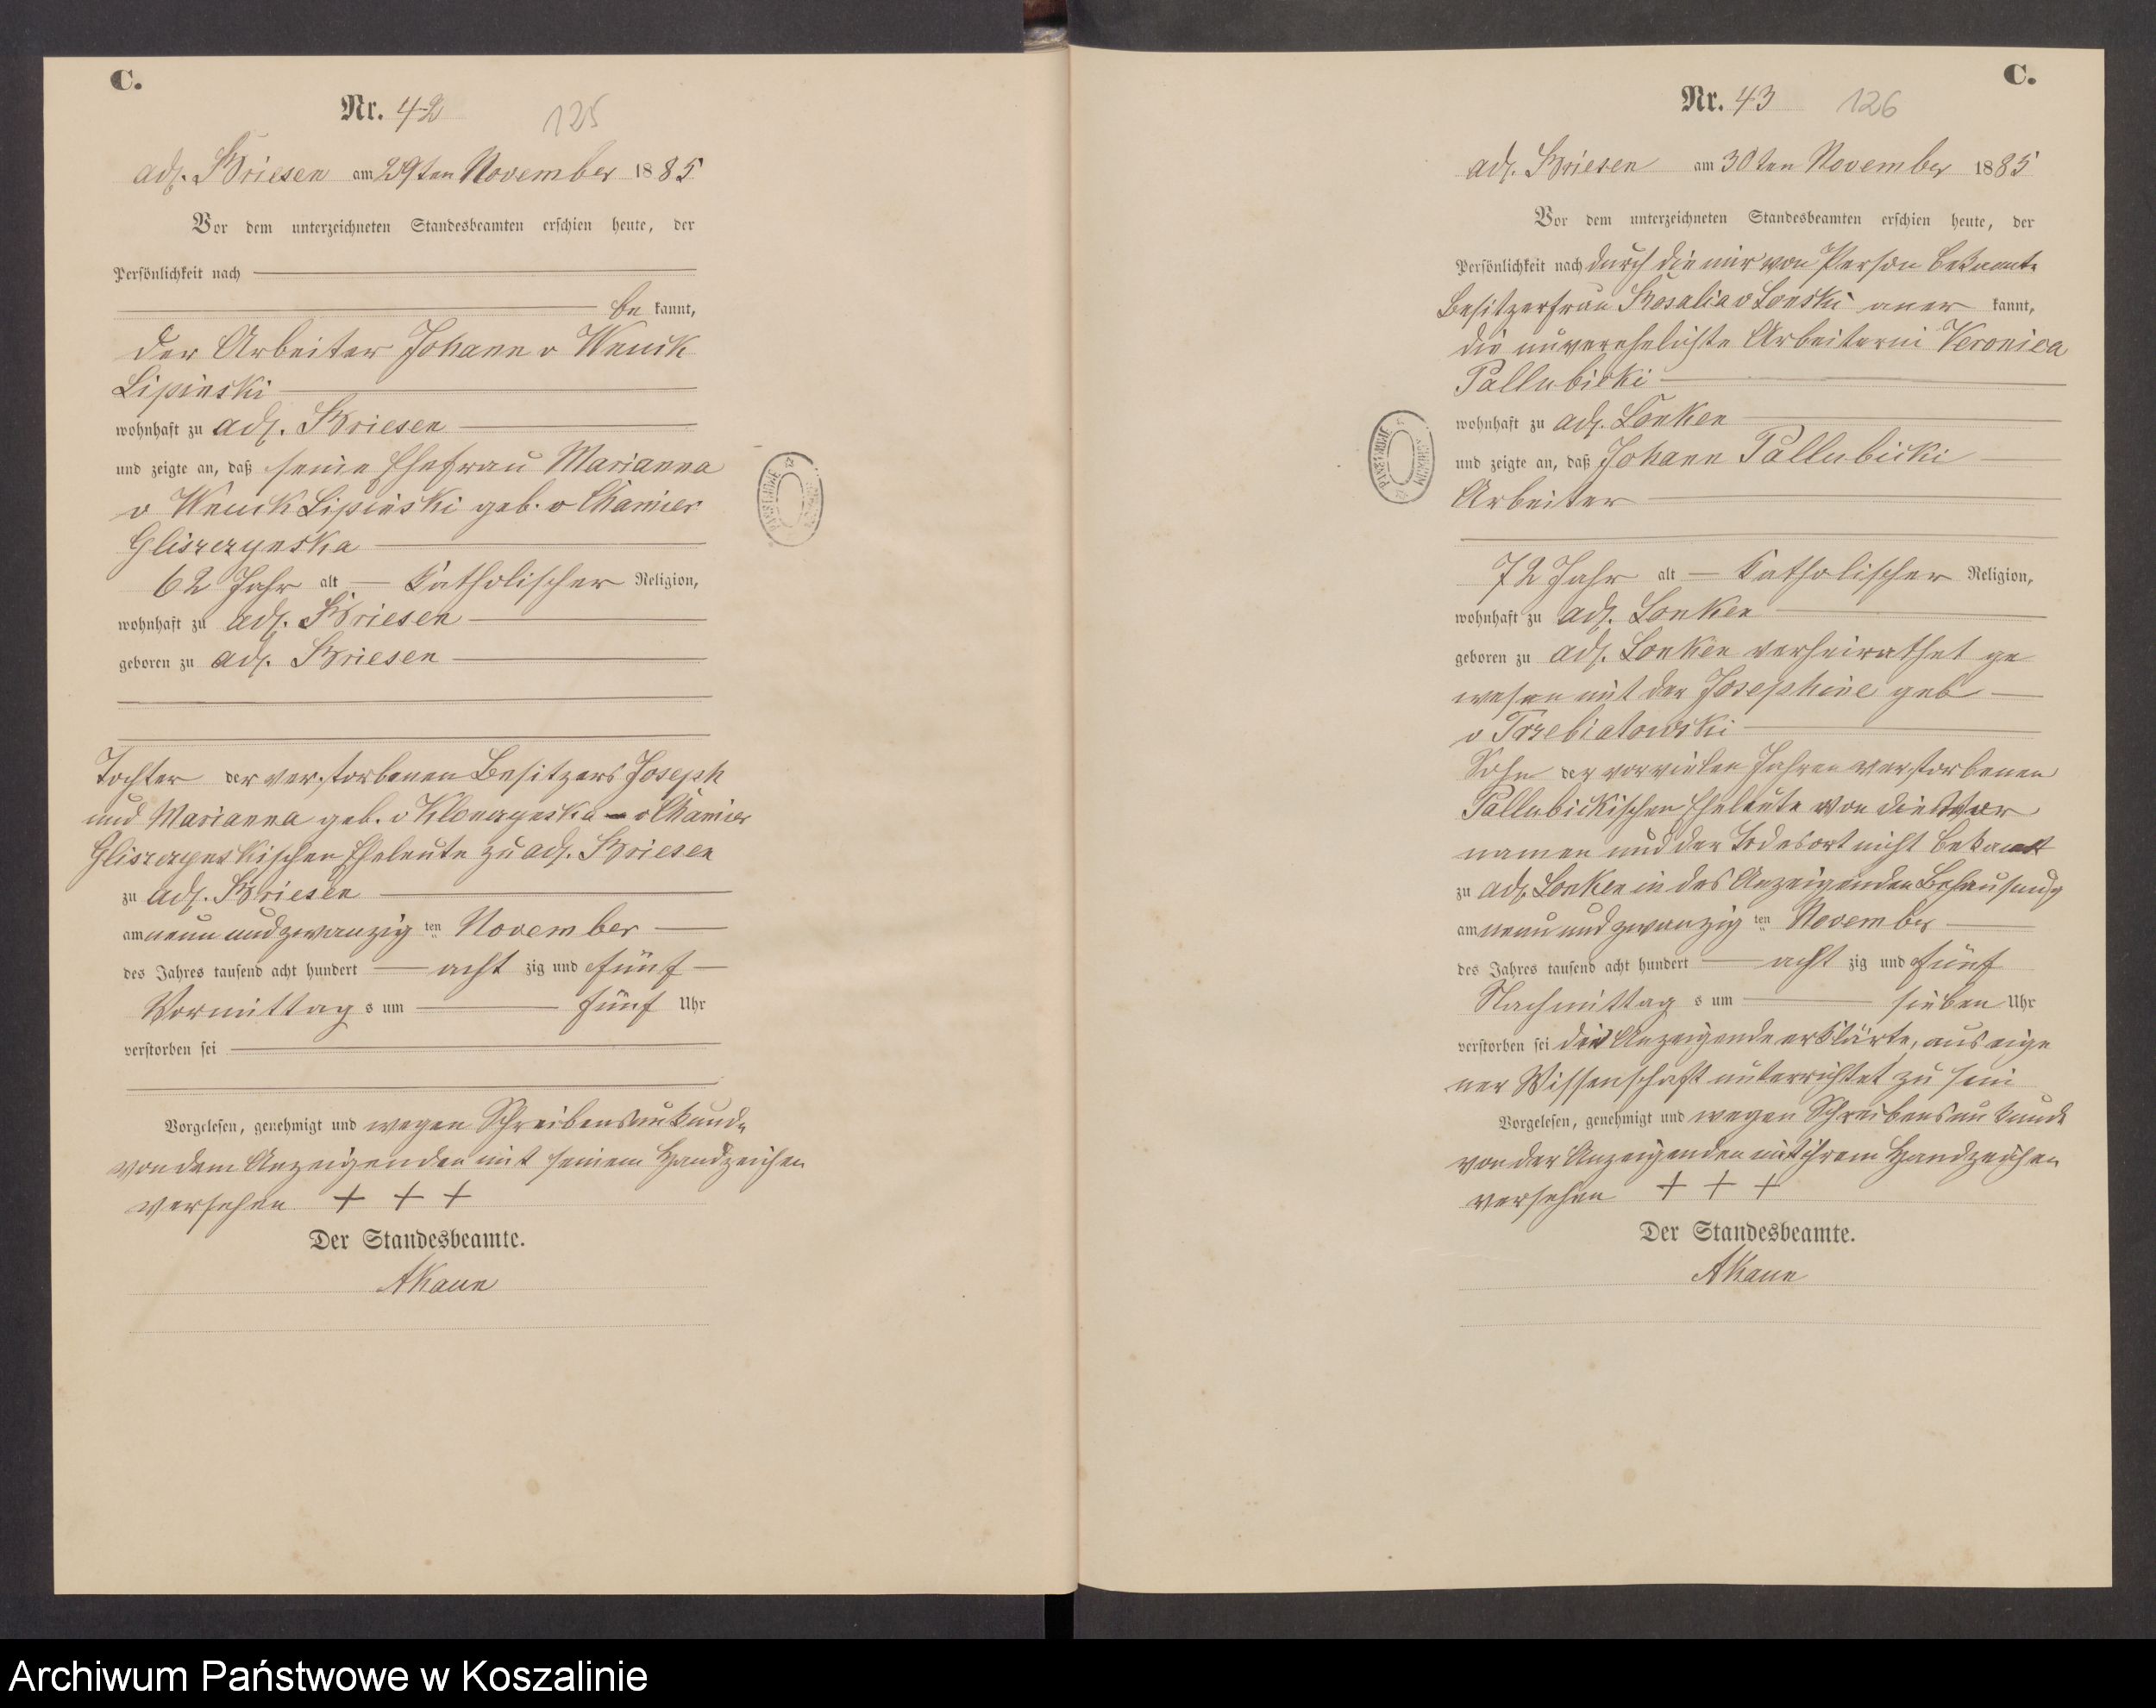 C.
Nr. 42 125
adl. Briesen am 29ten November 1885
Vor dem unterzeichneten Standesbeamten erschien heute, der
Persönlichkeit nach
be kannt,
der Arbeiter Johann v Wnuck
Lipinski
wohnhaft zu adl. Briesen
und zeigte an, daß seine Ehefrau Marianna
v Wnuck Lipinski geb. v Chamier
Gliszczynska
62 Jahr alt katholischer Religion,
wohnhaft zu adl. Briesen
geboren zu adl. Briesen
Tochter der verstorbenen Besitzers Joseph
und Marianna geb. v Klonczynska v Chamier
Gliszczynskischen Eheleute zu adl. Briesen
zu adl. Briesen
am neun und zwanzig ten November
des Jahres tausend acht hundert acht zig und fünf
Vormittag s um fünf Uhr
verstorben sei
Vorgelesen, genehmigt und wegen Schreibensunkunde
von dem Anzeigenden mit seinem Handzeichen
versehen + + +
Der Standesbeamte.
AKaun
C.
Nr. 43 126
adl. Briesen am 30ten November 1885
Vor dem unterzeichneten Standesbeamten erschien heute, der
Persönlichkeit nach durch die mir von Person bekannte
Besitzerfrau Rosalia v Lonski aner kannt,
die unverehelichte Arbeiterin Veronica
Pallubicki
wohnhaft zu adl. Lonken
und zeigte an, daß Johann Pallubicki
Arbeiter
72 Jahr alt katholischer Religion,
wohnhaft zu adl. Lonken
geboren zu adl. Lonken verheirathet ge
wesen mit der Josephine geb
v Trzebiatowski
Sohn der vor vielen Jahren verstorbenen
Pallubickischen Eheleute von die Vor
namen und der Todesort nicht bekannt
zu adl. Lonken in des Anzeigenden Behausung
am neun und zwanzig ten November
des Jahres tausend acht hundert acht zig und fünf
Nachmittag s um sieben Uhr
verstorben sei die Anzeigende erklärte, aus eige
ner Wissenschaft unterrichtet zu sein
Vorgelesen, genehmigt und wegen Schreibensunkunde
von der Anzeigenden mit ihrem Handzeichen
versehen + + +
Der Standesbeamte.
AKaun
Archiwum Państwowe w Koszalinie